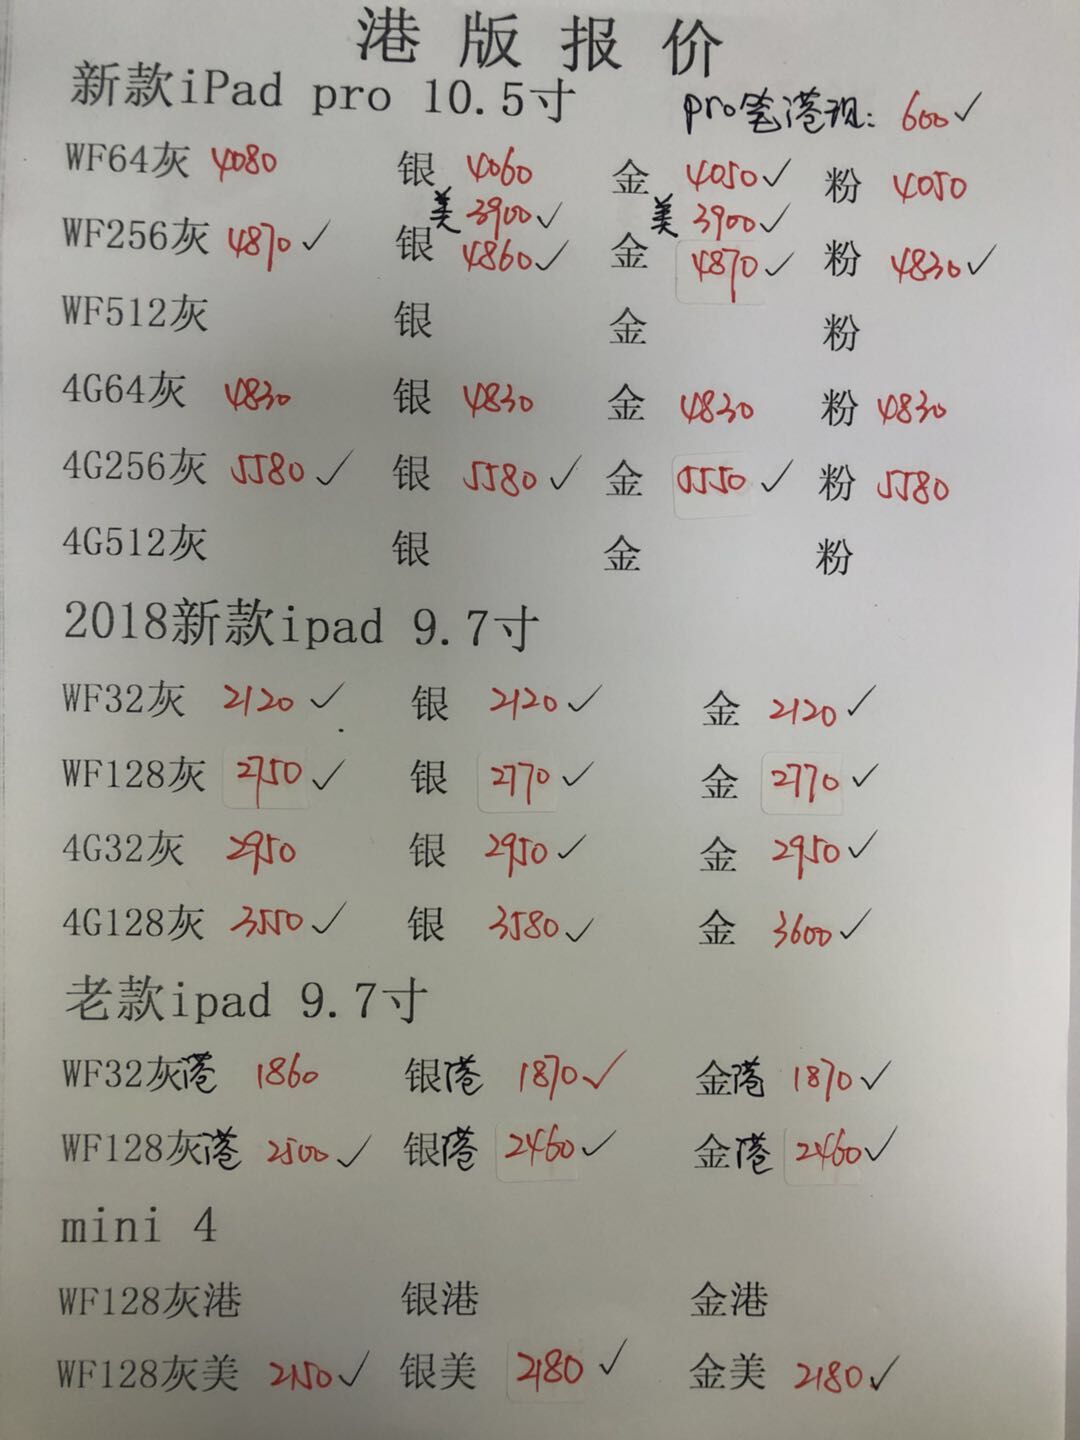 港版报价
新款iPad pro 10.5寸 pro笔港现: 600✓
WF64灰 4080 银 4060 金 4050✓ 粉 4050
美 3900✓ 美 3900✓
WF256灰 4870✓ 银 4860✓ 金 4870✓ 粉 4830✓
WF512灰 银 金 粉
4G64灰 4830 银 4830 金 4830 粉 4830
4G256灰 5580✓ 银 5580✓ 金 5550✓ 粉 5580
4G512灰 银 金 粉
2018新款ipad 9.7寸
WF32灰 2120✓ 银 2120✓ 金 2120✓
WF128灰 2750✓ 银 2770✓ 金 2770✓
4G32灰 2950 银 2950✓ 金 2950✓
4G128灰 3550✓ 银 3580✓ 金 3600✓
老款ipad 9.7寸
WF32灰港 1860 银港 1870✓ 金港 1870✓
WF128灰港 2500✓ 银港 2460✓ 金港 2460✓
mini 4
WF128灰港 银港 金港
WF128灰美 2150✓ 银美 2180✓ 金美 2180✓